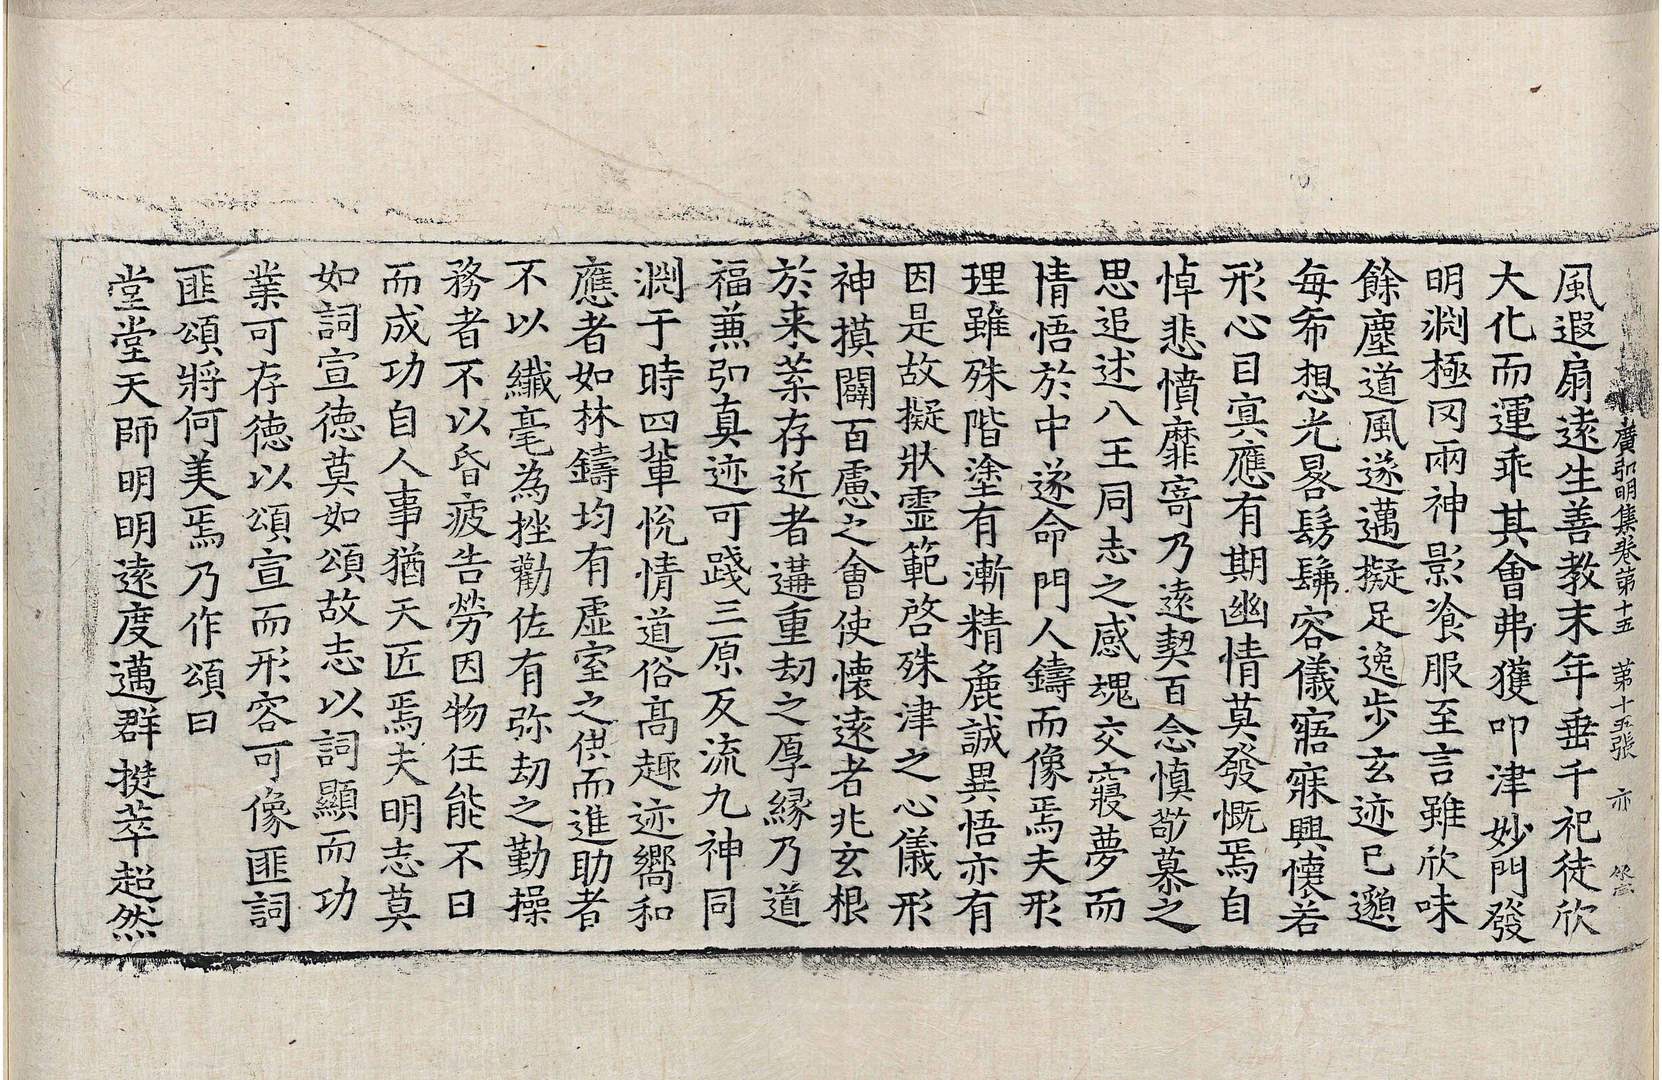 廣弘明集卷第十五 第十五張 亦
風遐扇遠生善教末年垂千祀徒欣
大化而運乖其會弗獲叩津妙門發
明渊極罔兩神影飡服至言雖欣味
餘塵道風遂邁擬足逸步玄迹已邈
每希想光畧髣髴容儀寤寐興懷若
形心目冥應有期幽情莫發慨焉自
悼悲憤靡寄乃遠契百念慎敬慕之
思追述八王同志之感魂交寢夢而
情悟於中遂命門人鑄而像焉夫形
理雖殊階塗有漸精麁誠異悟亦有
因是故擬狀靈範啓殊津之心儀形
神摸闢百慮之會使懷遠者兆玄根
於来葉存近者遘重劫之厚緣乃道
福兼弘真迹可踐三原反流九神同
渊于時四輩悅情道俗高趣迹嚮和
應者如林鑄均有虛室之供而進助者
不以纖毫為挫勸佐有弥劫之勤操
務者不以昏疲告勞因物任能不日
而成功自人事猶天匠焉夫明志莫
如詞宣德莫如頌故志以詞顯而功
業可存德以頌宣而形容可像匪詞
匪頌將何美焉乃作頌曰
堂堂天師明明遠度邁群挺萃超然